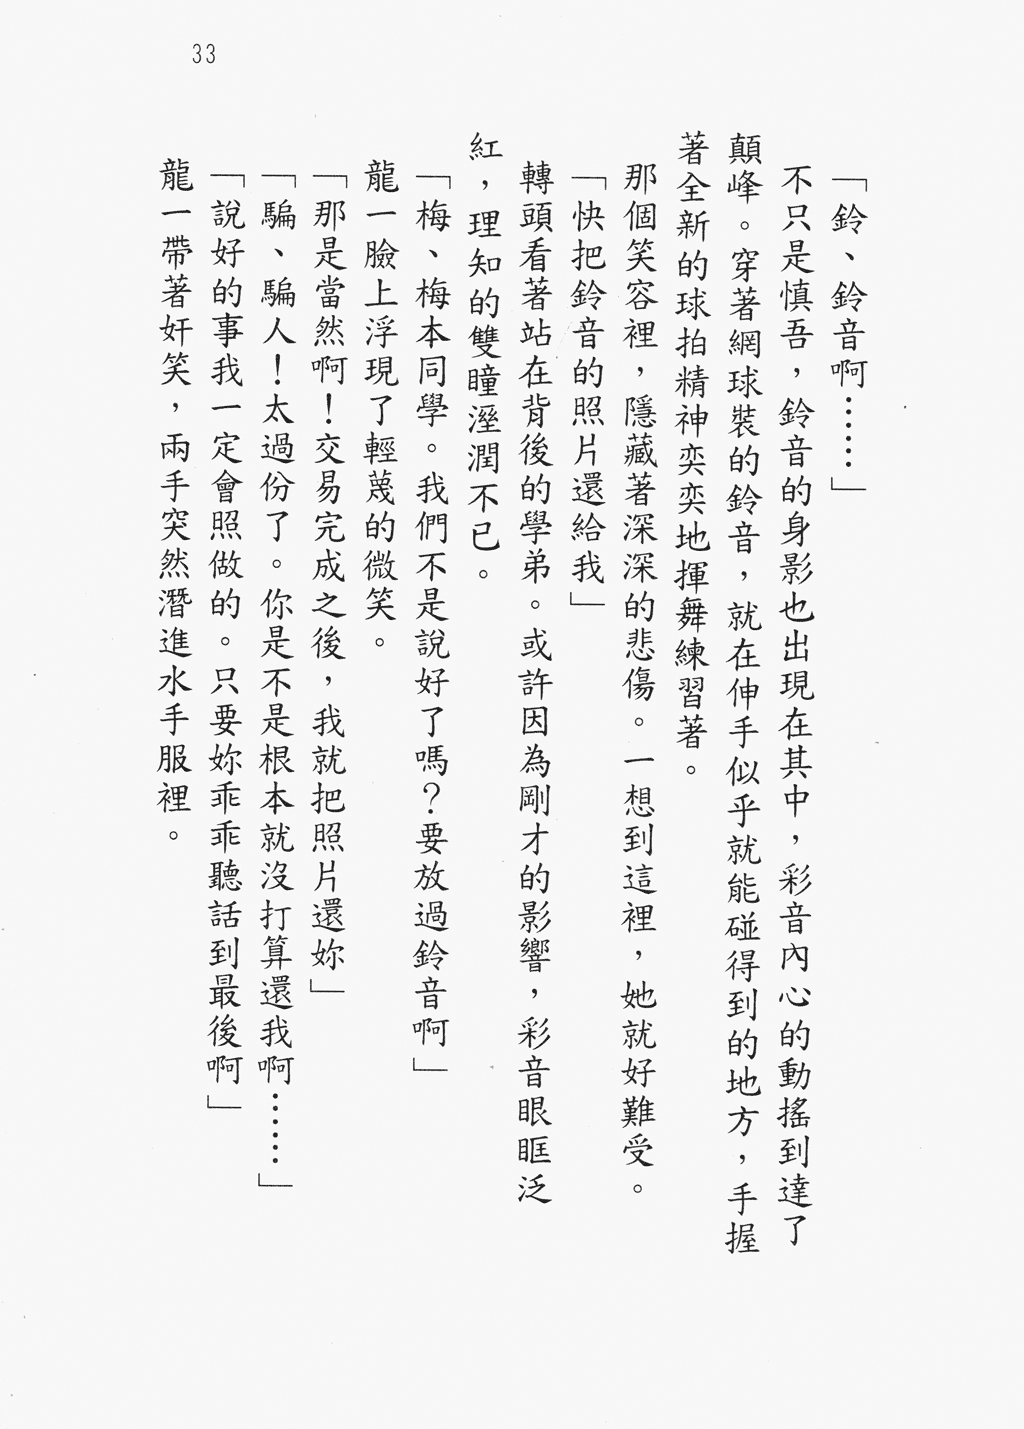 33
「鈴、鈴音啊……」
不只是慎吾，鈴音的身影也出現在其中，彩音內心的動搖到達了
顛峰。穿著網球裝的鈴音，就在伸手似乎就能碰得到的地方，手握
著全新的球拍精神奕奕地揮舞練習著。
那個笑容裡，隱藏著深深的悲傷。一想到這裡，她就好難受。
「快把鈴音的照片還給我」
轉頭看著站在背後的學弟。或許因為剛才的影響，彩音眼眶泛
紅，理知的雙瞳溼潤不已。
「梅、梅本同學。我們不是說好了嗎？要放過鈴音啊」
龍一臉上浮現了輕蔑的微笑。
「那是當然啊！交易完成之後，我就把照片還妳」
「騙、騙人！太過份了。你是不是根本就沒打算還我啊……」
「說好的事我一定會照做的。只要妳乖乖聽話到最後啊」
龍一帶著奸笑，兩手突然潛進水手服裡。